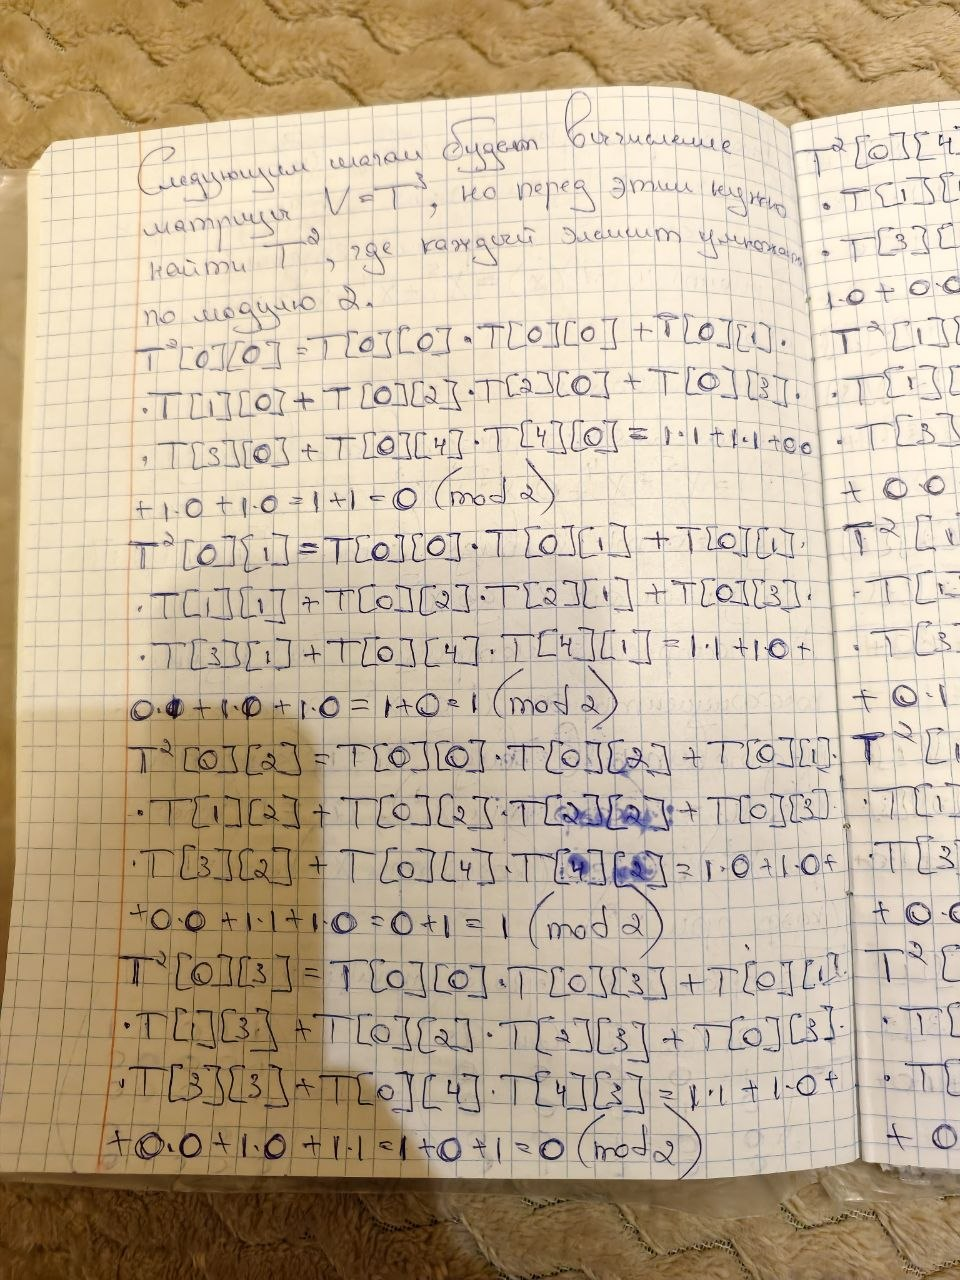 Следующим шагом будет вычисление
матрицы V=T³, но перед этим нужно
найти T², где каждый элемент умножаем
по модулю 2.
T²[0][0]=T[0][0]·T[0][0]+T[0][1]·
·T[1][0]+T[0][2]·T[2][0]+T[0][3]·
·T[3][0]+T[0][4]·T[4][0]=1·1+1·1+00
+1·0+1·0=1+1=0 (mod 2)
T²[0][1]=T[0][0]·T[0][1]+T[0][1]·
·T[1][1]+T[0][2]·T[2][1]+T[0][3]·
·T[3][1]+T[0][4]·T[4][1]=1·1+1·0+
+1·0+1·0=1+0=1 (mod 2)
T²[0][2]=T[0][0]·T[0][2]+T[0][1]·
·T[1][2]+T[0][2]·T[2][2]+T[0][3]·
·T[3][2]+T[0][4]·T[4][2]=1·0+1·0+
+0·0+1·1+1·0=0+1=1 (mod 2)
T²[0][3]=T[0][0]·T[0][3]+T[0][1]·
·T[1][3]+T[0][2]·T[2][3]+T[0][3]·
·T[3][3]+T[0][4]·T[4][3]=1·1+1·0+
+0·0+1·0+1·1=1+0+1=0 (mod 2)
T²[0][4
·T[1][
·T[3][
1·0+0·0
T²[1][
·T[1][
·T[3]
+0·0
T²[1
·T[1
·T[3
+0·1
T²[1
·T[1]
·T[3
+0·0
T²[
·T[
·T[
+0